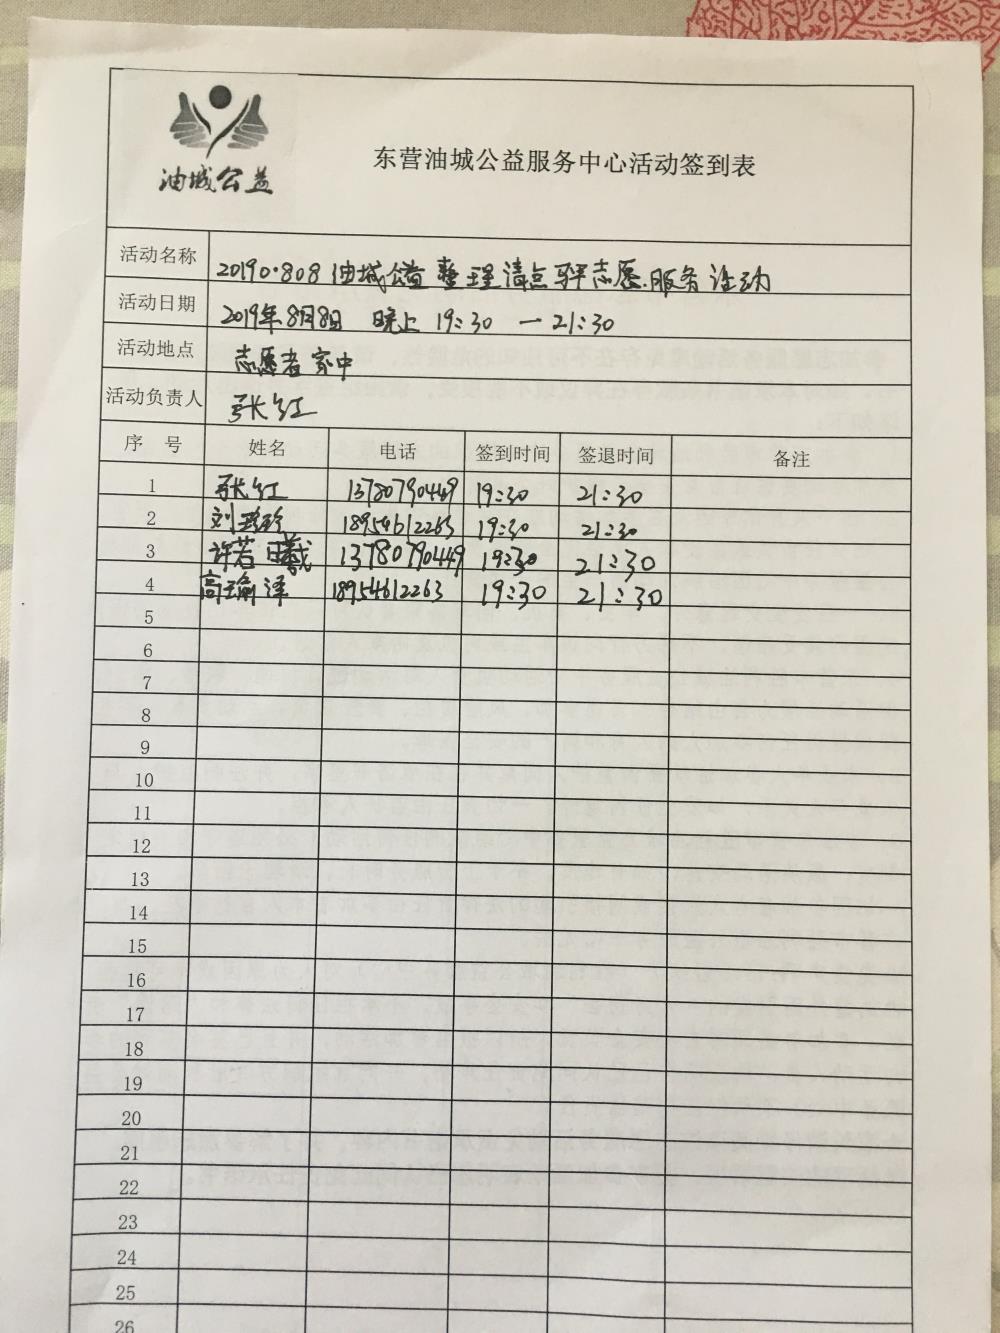 油城公益
东营油城公益服务中心活动签到表
活动名称 20190.808 油城公益 整理清点 志愿.服务活动
活动日期 2019年8月8日 晚上 19:30 — 21:30
活动地点 志愿者家中
活动负责人 张红
序 号 姓名 电话 签到时间 签退时间 备注
1 张红 13780790449 19:30 21:30
2 刘珍珍 18954612263 19:30 21:30
3 许若曦 13780790449 19:30 21:30
4 高瑜泽 18954612263 19:30 21:30
5
6
7
8
9
10
11
12
13
14
15
16
17
18
19
20
21
22
23
24
25
26